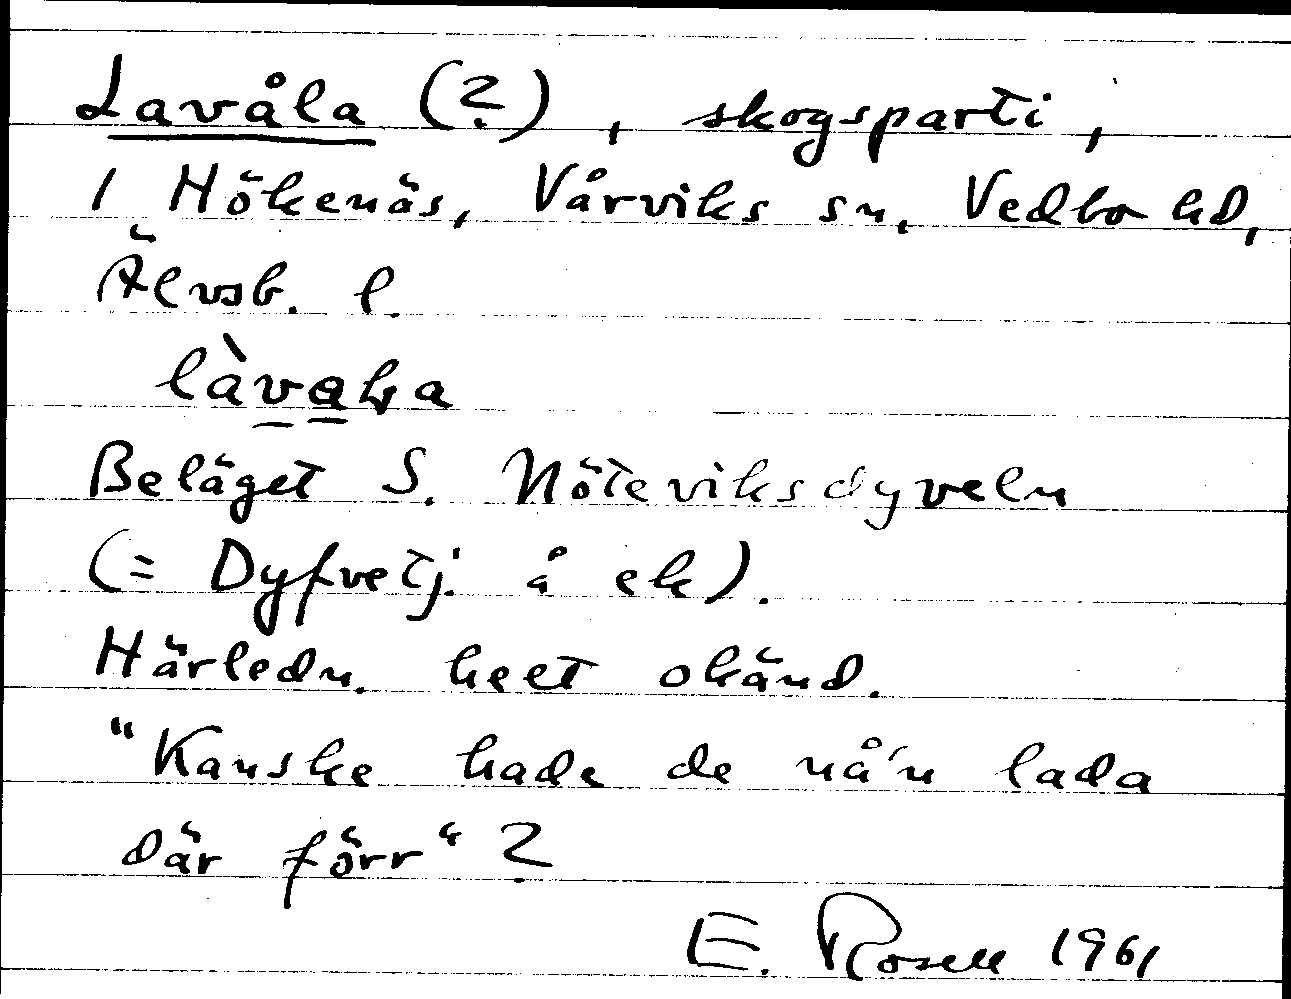 Lavåla (?), skogsparti,
1 Hökenäs, Vårviks sn, Vedbo hd,
Älvsb. l.
Beläget S. Nöteviksdyveln
(= Dyfvetj. å ek).
Härledn. helt okänd.
"Kanske hade de nå'n lada
där förr"?
E. Rosell 1961